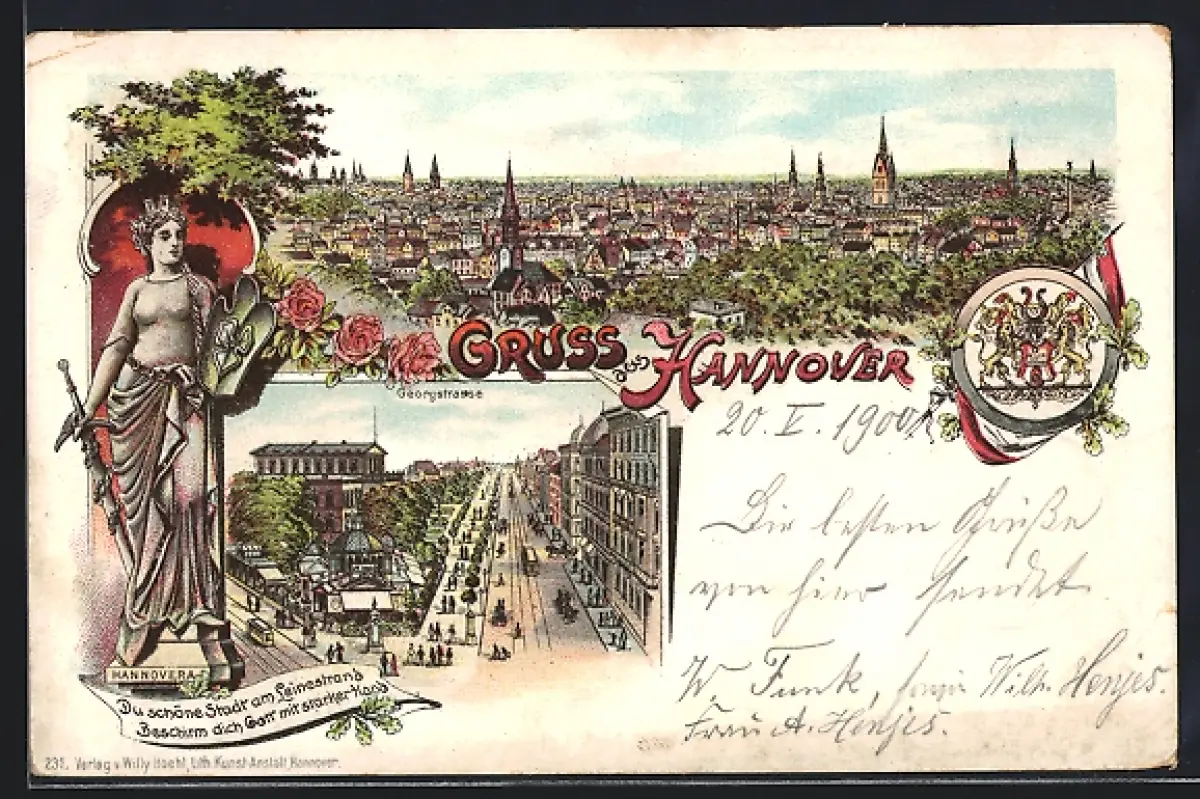 GRUSS aus HANNOVER
Georgstrasse
20. V. 1900
Die besten Grüße
von hier sendet
W. Funk, sowie Wilh. Henjes.
Frau A. Henjes.
HANNOVERA
Du schöne Stadt am Leinestrand
Beschirm dich Gott mit starker Hand
231. Verlag v. Willy Hoehl, Lith. Kunst-Anstalt, Hannover.